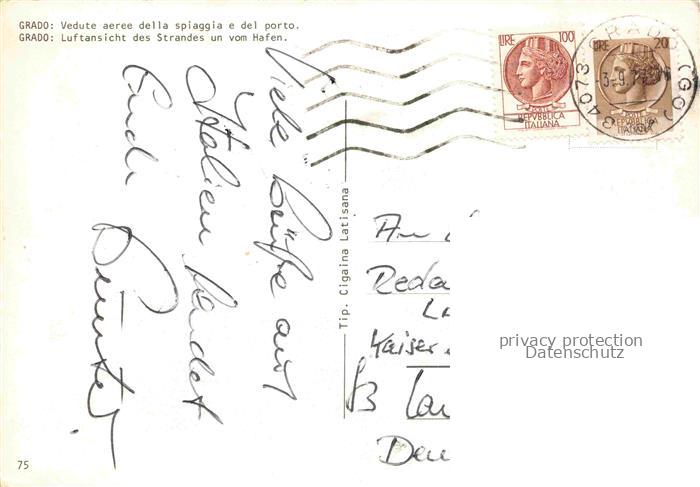 GRADO: Vedute aeree della spiaggia e del porto.
GRADO: Luftansicht des Strandes un vom Hafen.
LIRE 100
POSTE
REPVBBLICA
ITALIANA
LIRE 20
POSTE
REPVBBLICA
ITALIANA
34073 GRADO (GO)
-3-9.7
Viele Grüße aus
Italien sendet
Euch
Tip. Cigaina Latisana
An
Reda
Kaiser
privacy protection
Datenschutz
75